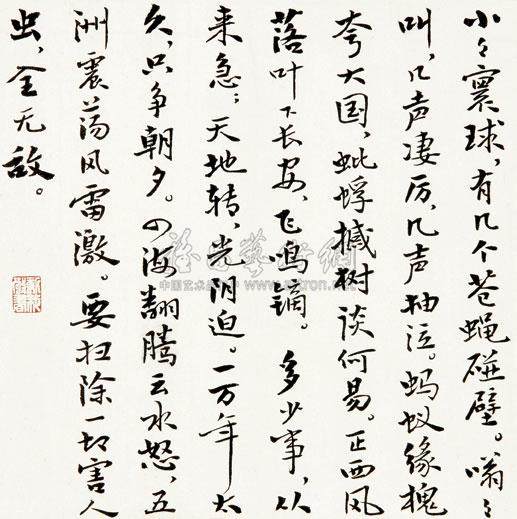 小々寰球,有几个苍蝇碰壁。嗡々
叫,几声凄厉,几声抽泣。蚂蚁缘槐
夸大国,蚍蜉撼树谈何易。正西风
落叶下长安,飞鸣镝。多少事,从
来急;天地转,光阴迫。一万年太
久,只争朝夕。四海翻腾云水怒,五
洲震荡风雷激。要扫除一切害人
虫,全无敌。